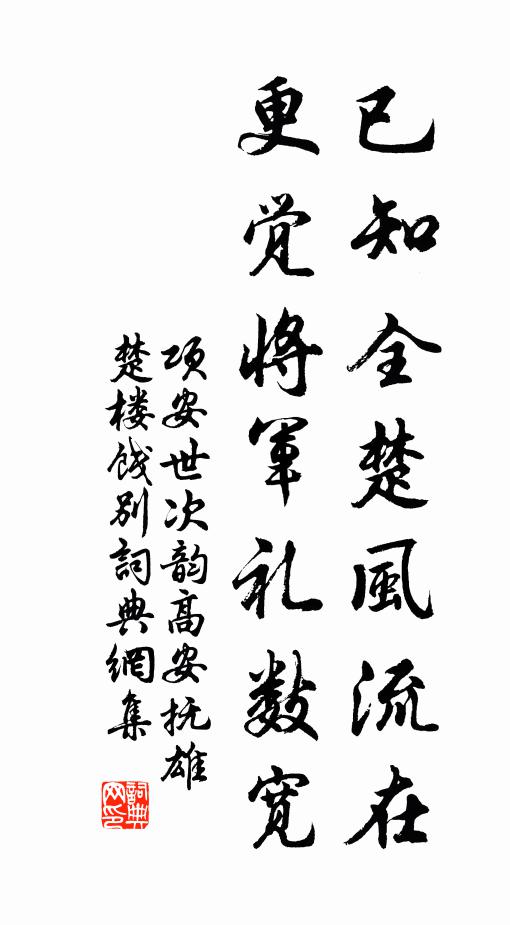 已知全楚風流在
更觉將軍礼数寬
项安世次韵高安抚雄
楚楼饯别詞典網集
詞典网印